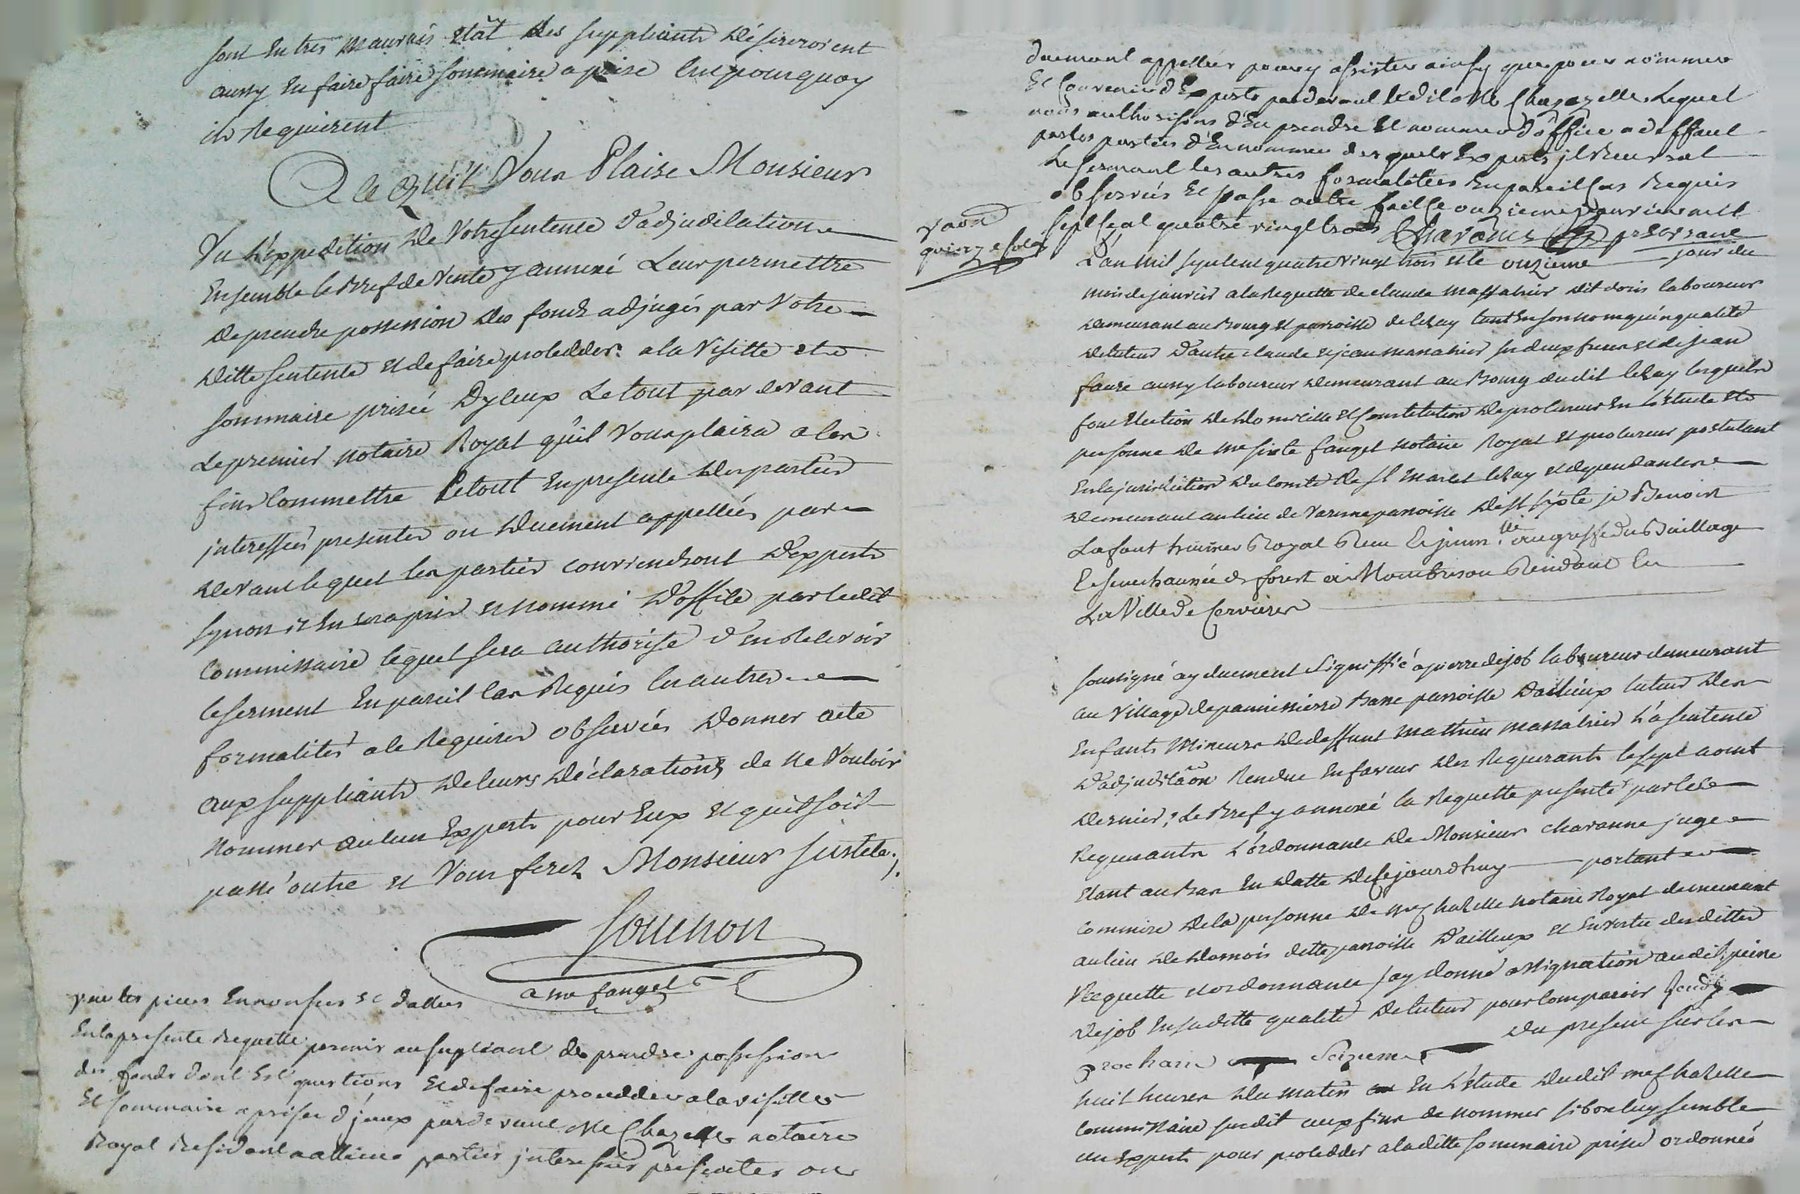 sont en tres mauvais etât les suppliants désireroient
aussy en faire faire sommaire aprise c'est pourquoy
ils requierent
A ce qu'il Vous Plaise Monsieur
Vu l'expedition de votre sentence d'adjudication
ensemble le bref de vente y annexé leur permettre
de prendre possession des fonds adjugés par votre
ditte sentence et de faire proceder a la visitte et
sommaire prisée d'yceux le tout par devant
le premier notaire Royal qu'il vous plaira a ces
fins commettre le tout en presence des parties
interessées presentes ou duement appellées par
devant lequel les parties conviendront d'experts
sinon il en sera pris et nommé d'office par ledit
commissaire lequel sera authorisé d'en recevoir
le serment en pareil cas requis les autres
formalités a ce requises observées donner acte
aux suppliants de leurs déclarations de ne vouloir
nommer aucun experts pour eux et qu'il soit
passé outre et vous ferez Monsieur justice./.
Souchon
a me fanget
vu les pieces enoncées et dattées
en la presente requette permis au supliant de prendre possession
des fonds dont est questions et de faire proceder a la visitte
et sommaire aprisee d'jceux par devant Me Chazelle notaire
Royal residant a allieu parties interessées presentes ou
duement appellées pour y assister ainsy que pour nommer
et convenir d'experts pardevant ledit Me Chazelle, lequel
nous authorisons d'en prendre et nommer d'office a deffaut
par les parties d'en nommer desquels experts il recevrat
le serment les autres formalitées en pareil cas requis
observés et passé outre faitte onzieme janvier mil
sept cent quatre vingt trois Chavanne
quinze sols
L'an mil sept cent quatre vingt trois et le onzieme jour du
mois de janvier a la requette de claude massacrier dit doris laboureur
demeurant au Bourg et parroisse de lezay tant en son nom qu'en qualité
de tuteur d'autre claude et jean massacrier ses deux freres et de jean
faure aussy laboureur demeurant au Bourg dudit lezay lesquels
font election de domicille et constitution de procureur en l'étude et
personne de me sixte fanget notaire Royal et procureur postulant
en la jurisdiction du comté de st marcel lezay et dependances
demeurant au lieu de varenne parroisse de st sixte je Benoist
Lafont huissier Royal Reçu et jmm.lle au greffe du Baillage
et senechaussée de forest a Montbrison Residant en
La Ville de Cervieres
soussigné ay duement signiffié a pierre dejob laboureur demeurant
au village de panissiere Basse parroisse d'ailleux tuteur des
enfants mineurs de deffunt mathieu massacrier l'a sentence
d'adjudicaôn Rendue en faveur des Requerants le sept aoust
dernier, le bref y annexé la Requette presenté par les
Requerants l'ordonnance de Monsieur chavanne juge
etant au bas en datte de ce jourd'huy portant
commise de la personne de me chazelle notaire Royal demeurant
au lieu de damois ditte parroisse d'ailleux et en vertu desdittes
Requette et ordonnance j'ay donné assignation audit pierre
dejob en saditte qualité de tuteur pour comparoir jeudy
prochain seizieme du present sur les
huit heures du matin en l'étude dudit me chazelle
commissaire susdit aux fins de nommer si bon luy semble
un experts pour proceder a la ditte sommaire prisée ordonnée